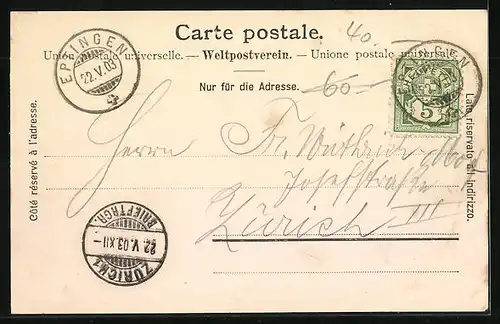 Carte postale.
40.
Union postale universelle. — Weltpostverein. — Unione postale universale
Nur für die Adresse.
60
EPTINGEN
22.V.03
4
EPTINGEN
5
Côté réservé à l'adresse.
Lato riservato all' indirizzo.
Herrn Fr. Wüthrich
Josefstrasse
Zürich III
ZÜRICH 1
22.V.03.XII–
BRIEFTRGR.